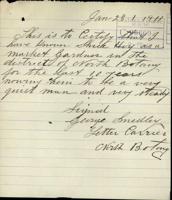 Jan 23. 1911.
This is to Certify that I
have known Hick Hoy as a
market Gardner in the
district of North Botany
for the last 10 years
him to be a very
quiet man and very steady
Signed
George Smedley
Letter Carrier
North Botany